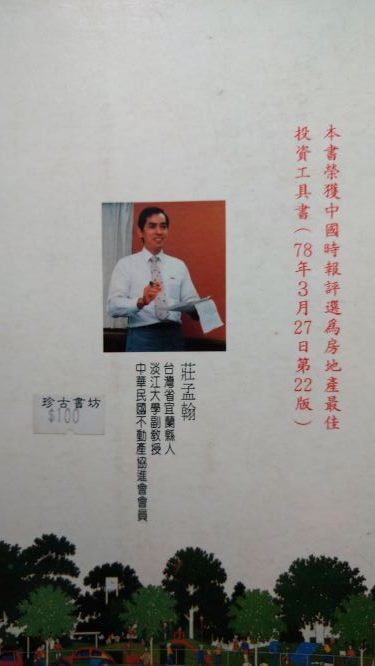 本書榮獲中國時報評選為房地產最佳
投資工具書（78年3月27日第22版）
莊孟翰
台灣省宜蘭縣人
淡江大學副教授
中華民國不動產協進會會員
珍古書坊
$100